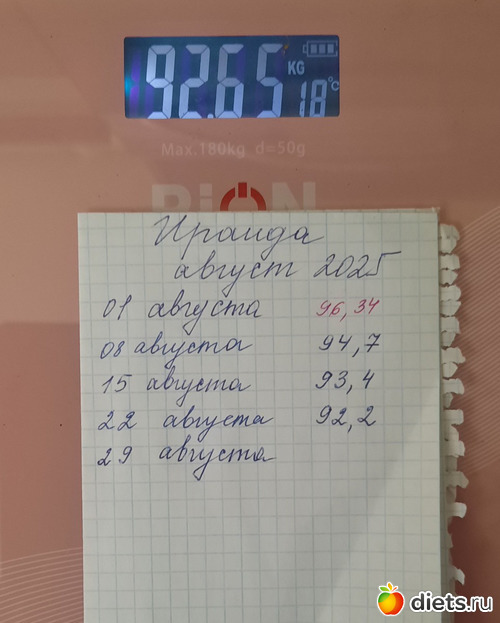 92.65 KG
18°C
Max.180kg d=50g
RiON
Ираида
август 2025
01 августа 96,34
08 августа 94,7
15 августа 93,4
22 августа 92,2
29 августа
diets.ru